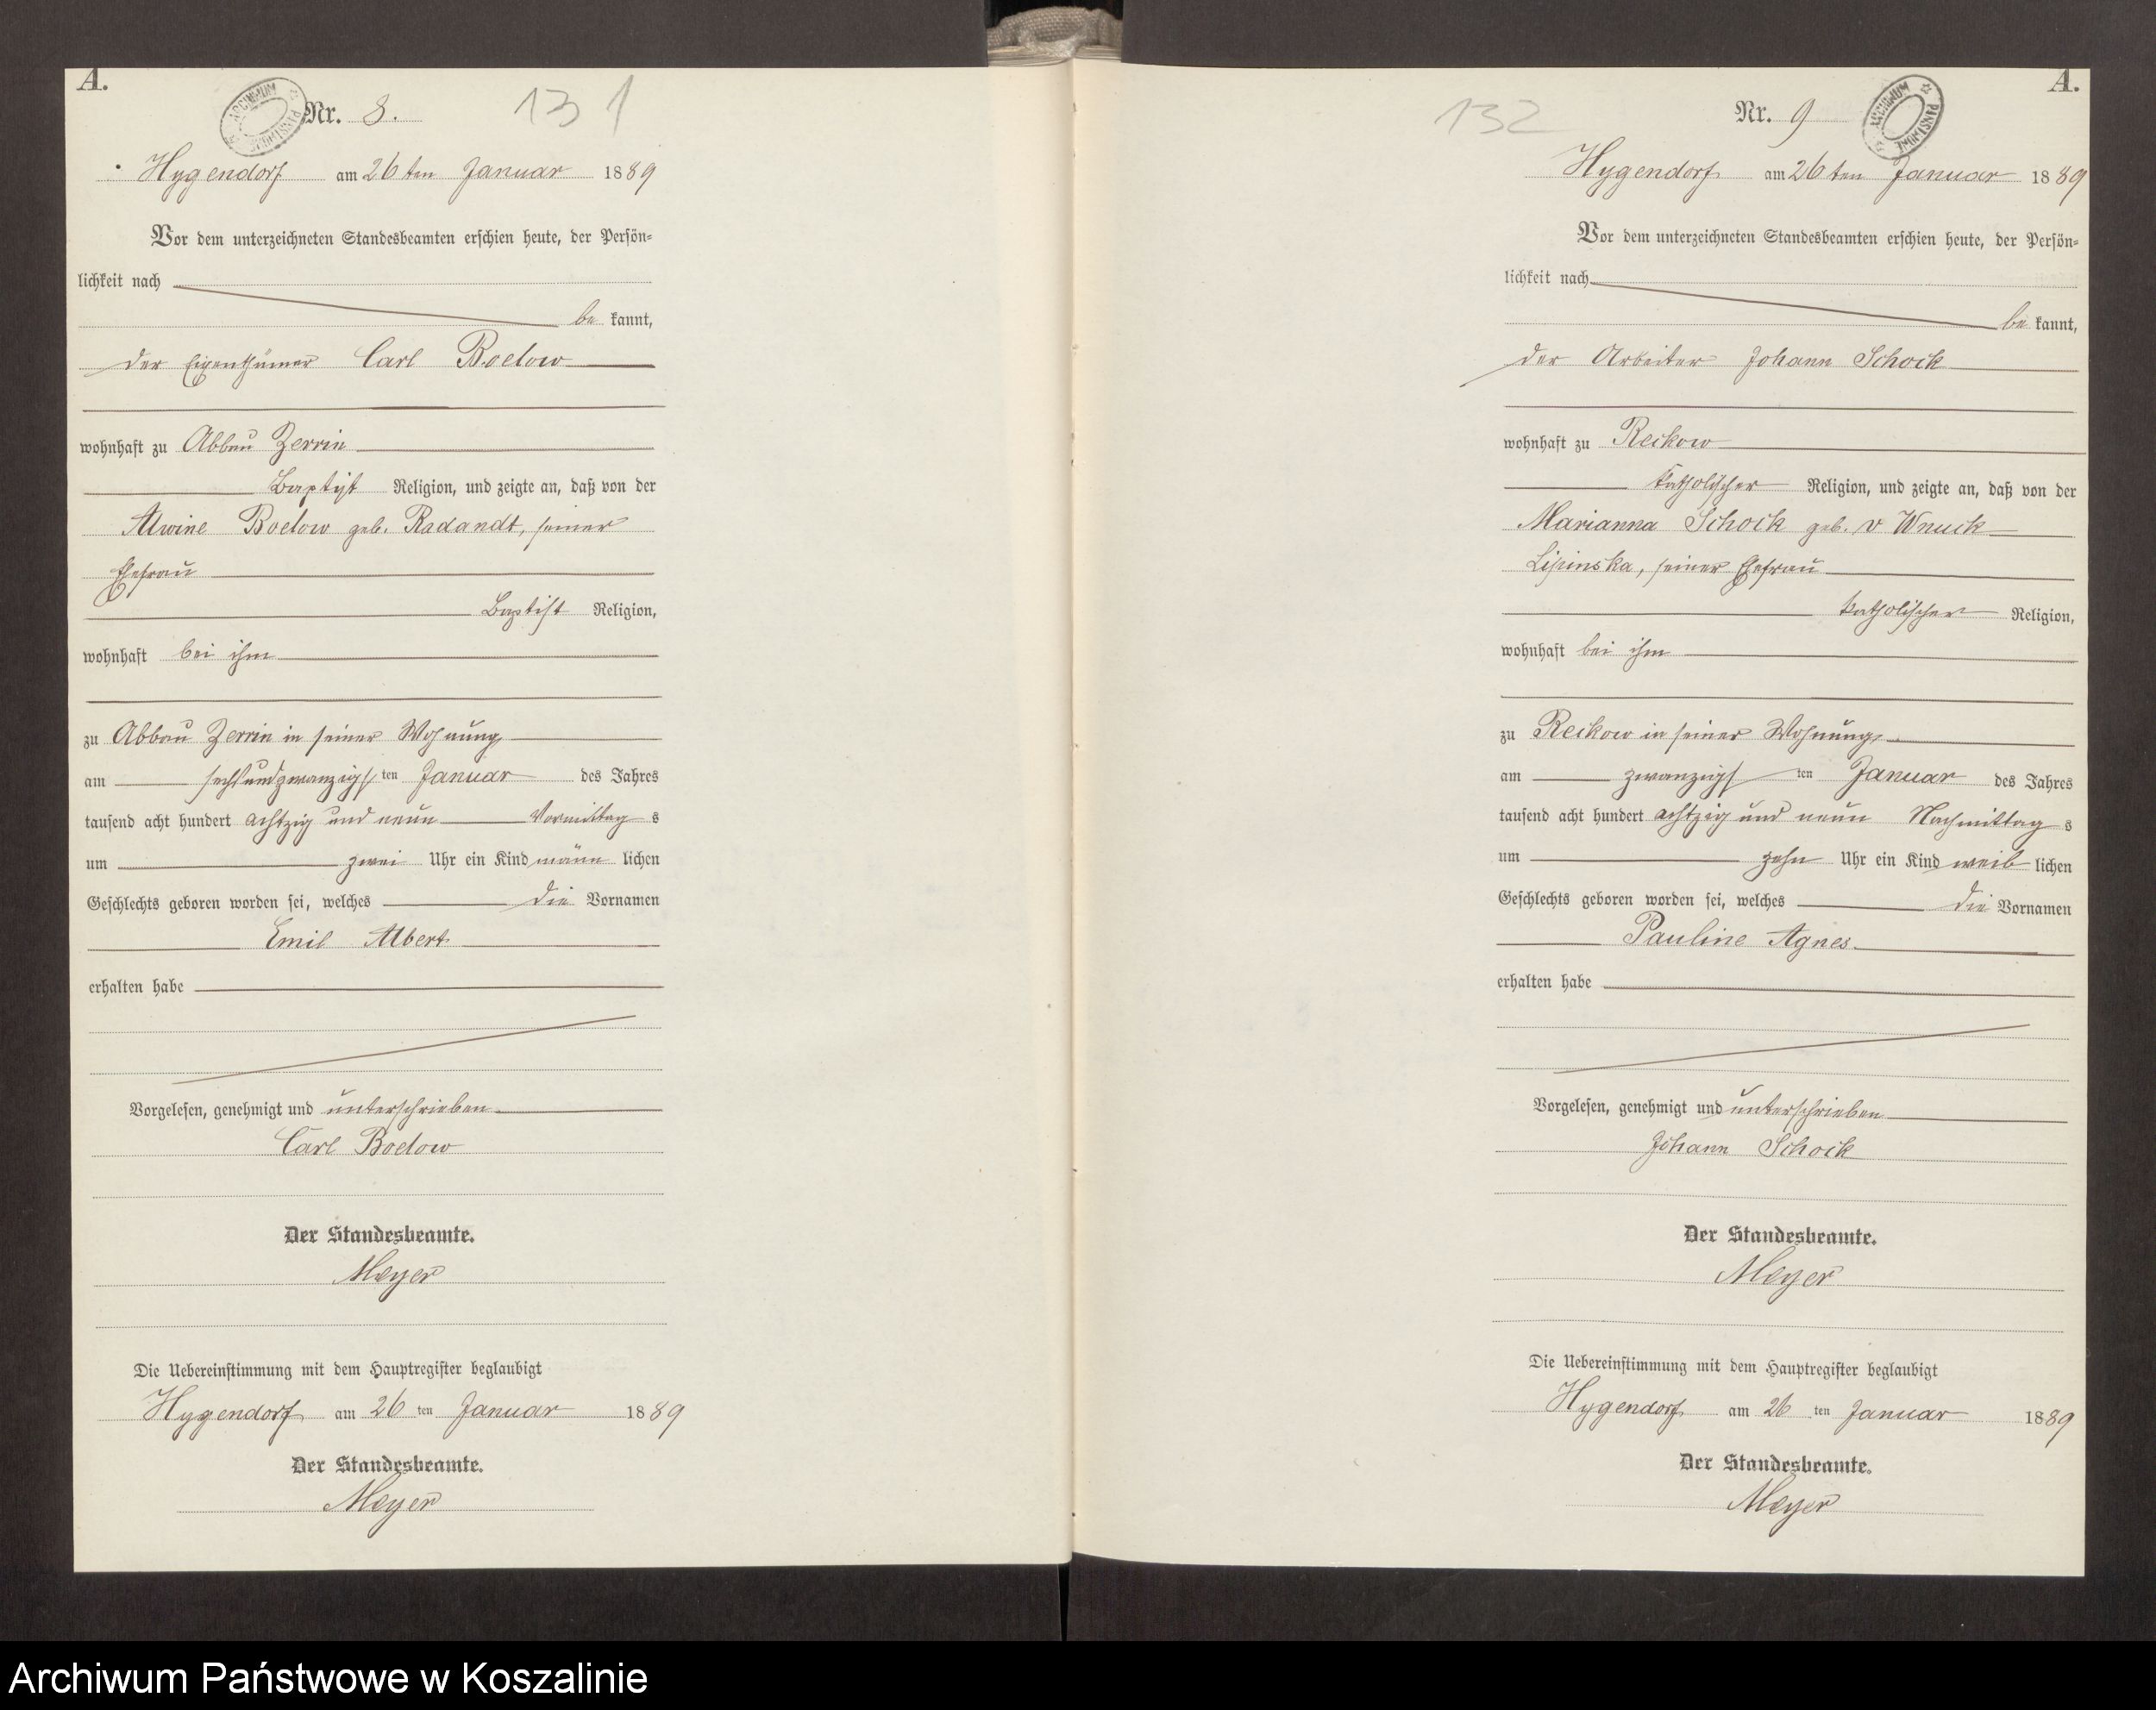 A.
Nr. 8. 131
Hygendorf am 26ten Januar 1889
Vor dem unterzeichneten Standesbeamten erschien heute, der Persön-
lichkeit nach
be kannt,
der Eigenthümer Carl Boelow
wohnhaft zu Abbau Zerrin
Baptist Religion, und zeigte an, daß von der
Alwine Boelow geb. Radandt, seiner
Ehefrau
Baptist Religion,
wohnhaft bei ihm
zu Abbau Zerrin in seiner Wohnung
am sechsundzwanzigsten Januar des Jahres
tausend acht hundert achtzig und neun Vormittag s
um zwei Uhr ein Kind männ lichen
Geschlechts geboren worden sei, welches die Vornamen
Emil Albert
erhalten habe
Vorgelesen, genehmigt und unterschrieben
Carl Boelow
Der Standesbeamte.
Meyer
Die Uebereinstimmung mit dem Hauptregister beglaubigt
Hygendorf am 26 ten Januar 1889
Der Standesbeamte.
Meyer
A.
132 Nr. 9
Hygendorf am 26ten Januar 1889
Vor dem unterzeichneten Standesbeamten erschien heute, der Persön-
lichkeit nach
be kannt,
der Arbeiter Johann Schock
wohnhaft zu Reckow
katholischer Religion, und zeigte an, daß von der
Marianna Schock geb. v Wnuck
Lipinska, seiner Ehefrau
katholischer Religion,
wohnhaft bei ihm
zu Reckow in seiner Wohnung
am zwanzigsten Januar des Jahres
tausend acht hundert achtzig und neun Nachmittag s
um zehn Uhr ein Kind weib lichen
Geschlechts geboren worden sei, welches die Vornamen
Pauline Agnes
erhalten habe
Vorgelesen, genehmigt und unterschrieben
Johann Schock
Der Standesbeamte.
Meyer
Die Uebereinstimmung mit dem Hauptregister beglaubigt
Hygendorf am 26 ten Januar 1889
Der Standesbeamte.
Meyer
Archiwum Państwowe w Koszalinie